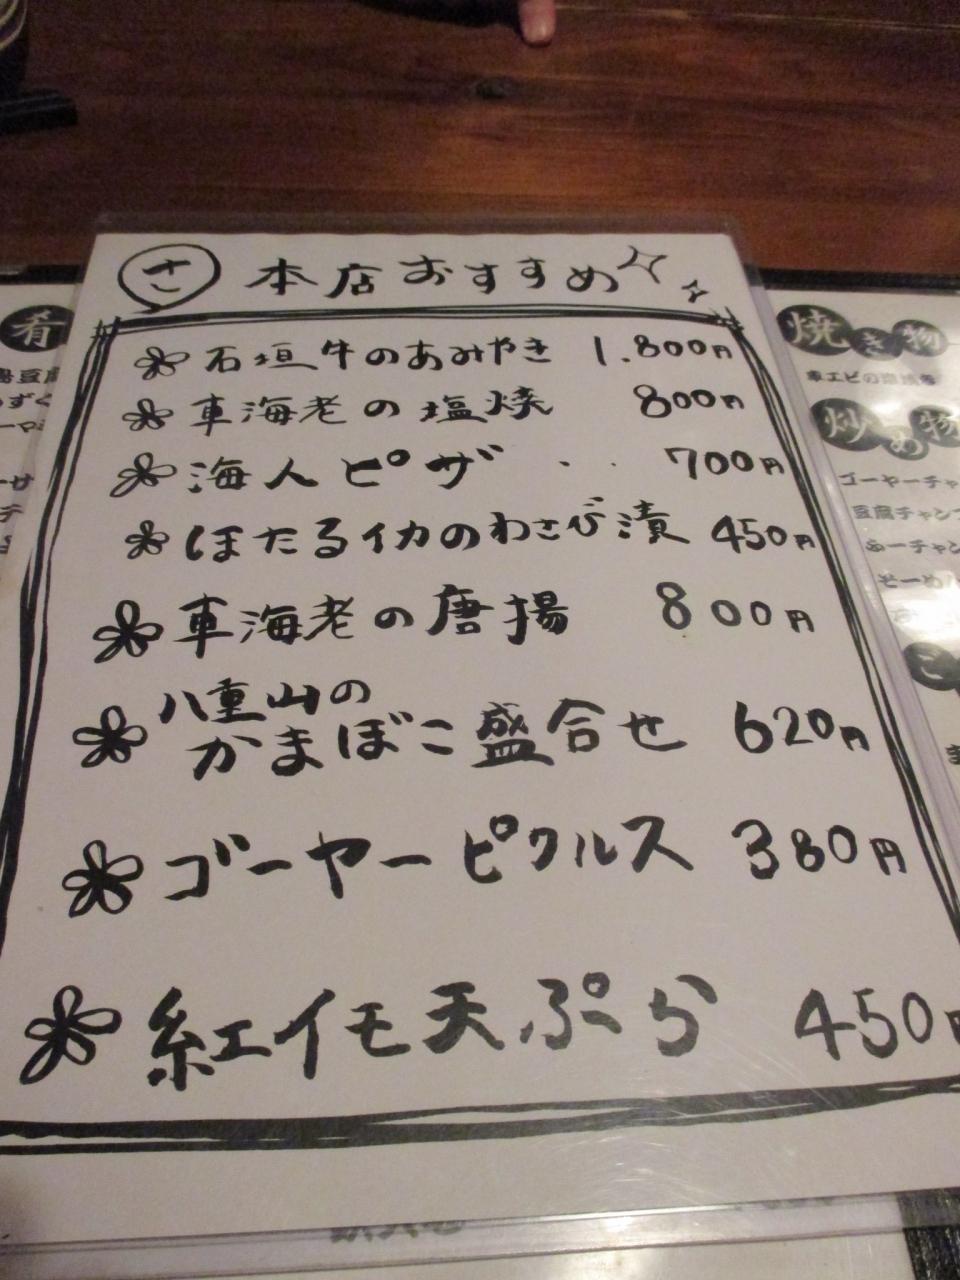 さ 本店おすすめ
石垣牛のあみやき 1.800円
車海老の塩焼 800円
海人ピザ ・・ 700円
ほたるイカのわさび漬 450円
車海老の唐揚 800円
八重山の
かまぼこ盛合せ 620円
ゴーヤーピクルス 380円
紅イモ天ぷら 450円
肴
島豆腐
焼き物
車エビの塩焼き
炒め物
ゴーヤーチャ
豆腐チャンプ
ふーチャン
そーめん